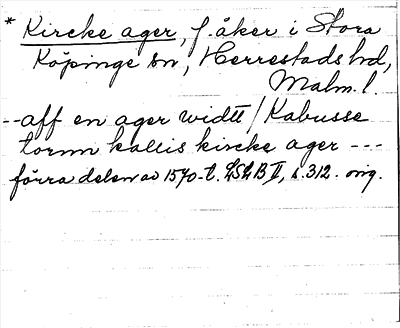 * Kircke ager, f. åker i Stora
Köpinge sn, Herrestads hd,
Malm. l.
--aff en ager widtt / Kabusse
tornn kallis kircke ager ---
förra delen av 1570-t. LSLB II, s. 312. orig.